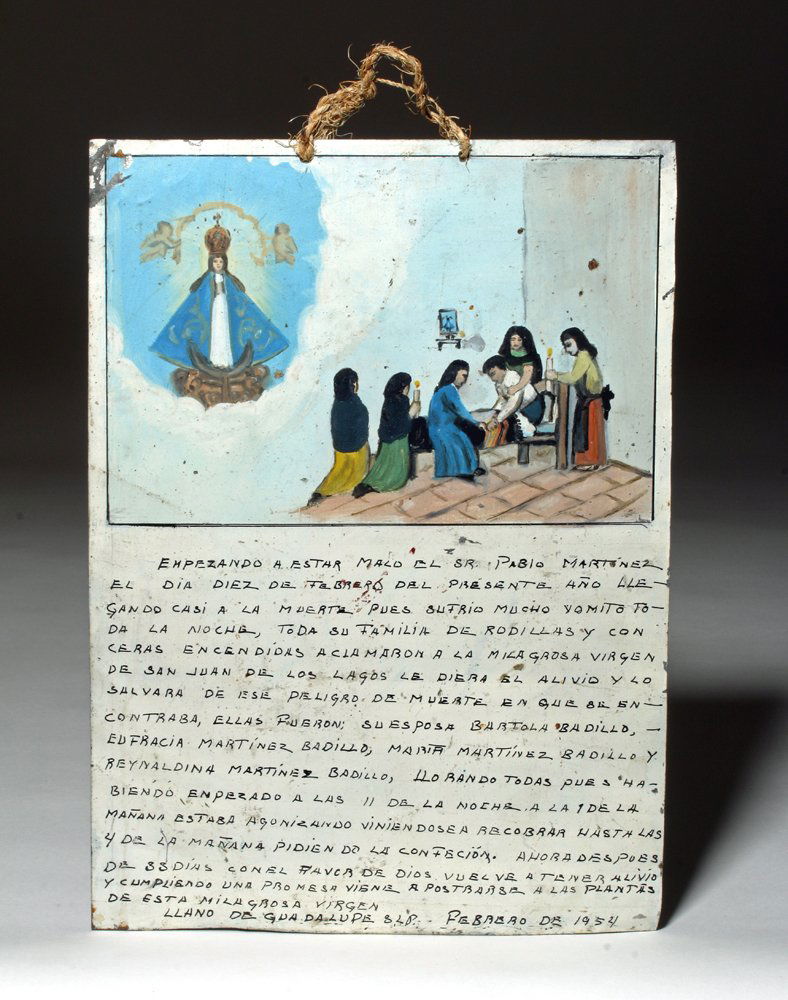 EMPEZANDO A ESTAR MALO EL SR. PABIO MARTÍNEZ
EL DÍA DIEZ DE FEBRERO DEL PRESENTE AÑO LLE-
GANDO CASI A LA MUERTE PUES SUFRIO MUCHO VOMITO TO-
DA LA NOCHE, TODA SU FAMILIA DE RODILLAS Y CON
CERAS ENCENDIDAS ACLAMARON A LA MILAGROSA VIRGEN
DE SAN JUAN DE LOS LAGOS LE DIERA EL ALIVIO Y LO
SALVARA DE ESE PELIGRO DE MUERTE EN QUE SE EN-
CONTRABA, ELLAS FUERON; SU ESPOSA BARTOLA BADILLO, -
EUFRACIA MARTÍNEZ BADILLO, MARÍA MARTÍNEZ BADILLO Y
REYNALDINA MARTÍNEZ BADILLO, LLORANDO TODAS PUES HA-
BIENDO ENPEZADO A LAS 11 DE LA NOCHE A LA 1 DE LA
MAÑANA ESTABA AGONIZANDO VINIENDOSE A RECOBRAR HASTA LAS
4 DE LA MAÑANA PIDIENDO LA CONFECIÓN. AHORA DESPUES
DE 33 DÍAS CON EL FAVOR DE DIOS VUELVE A TENER ALIVIO
Y CUMPLIENDO UNA PROMESA VIENE A POSTRARSE A LAS PLANTAS
DE ESTA MILAGROSA VIRGEN
LLANO DE GUADALUPE SLP. FEBRERO DE 1954